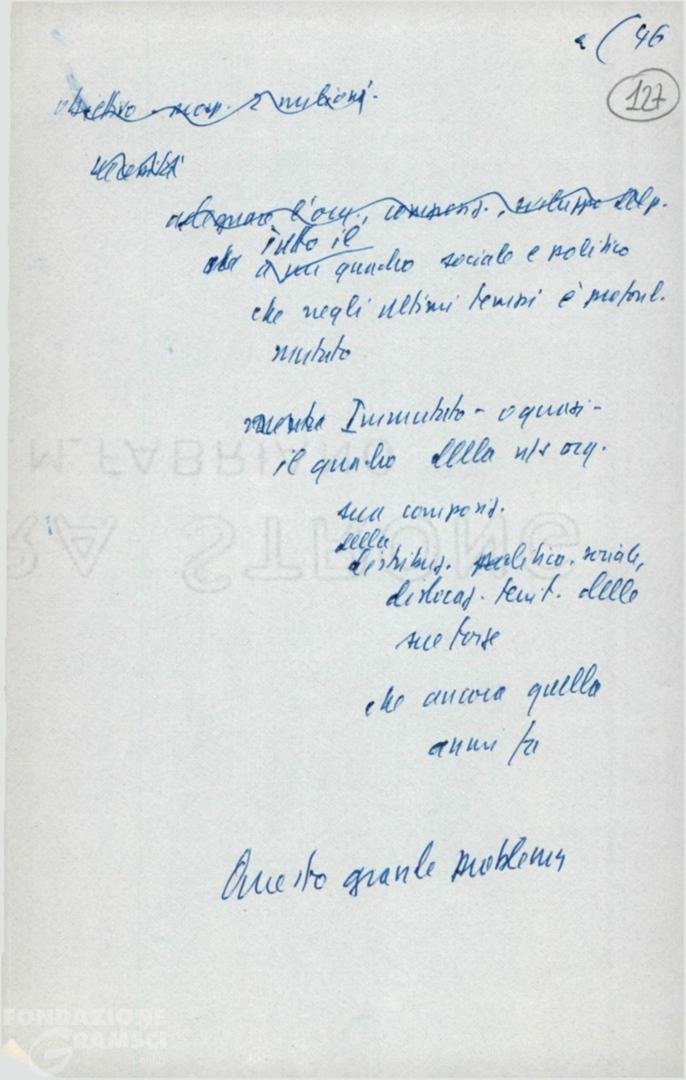 46
127
obiettivo - 2 milioni.
necessità
adeguare l'org., composiz., sviluppo del p.
tutto il
a un quadro sociale e politico
che negli ultimi tempi è profond.
mutato
mentre Immutato - o quasi -
il quadro della ns org.
sua composiz.
della
distribuz. politico-sociale,
dislocaz. territ. delle
sue forze
che ancora quella
anni fa
Questo grande problema
M. FABRIANO
EXTRA STRONG
FONDAZIONE
GRAMSCI